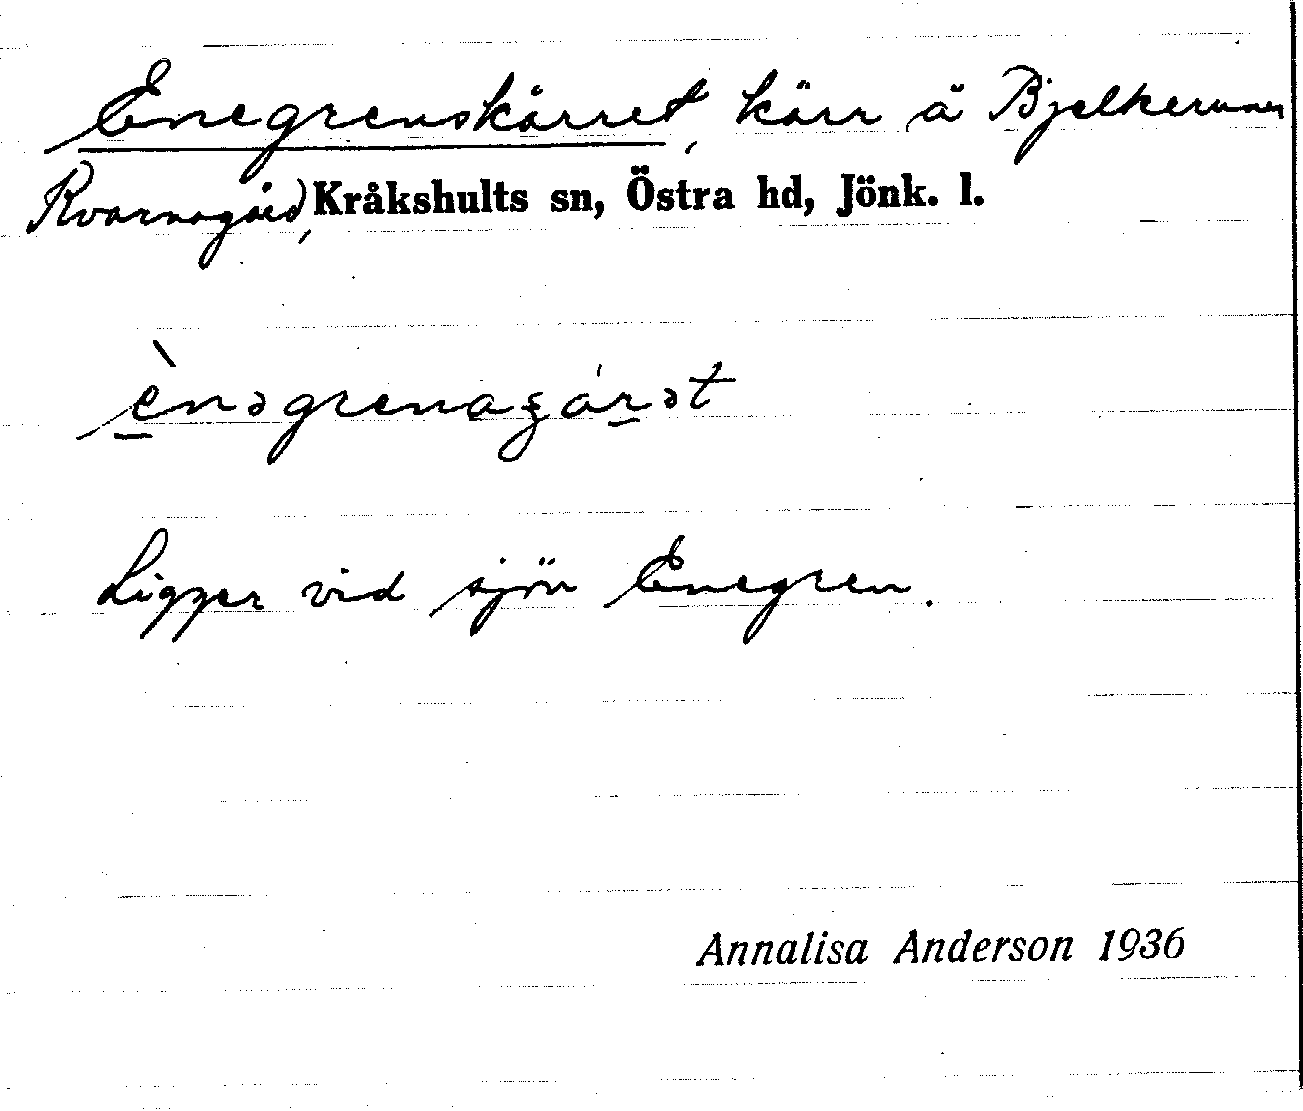 Enegrenskärret, kärr å Bjelkerums
Kvarnagård, Kråkshults sn, Östra hd, Jönk. l.
Ligger vid sjön Enegren.
Annalisa Anderson 1936